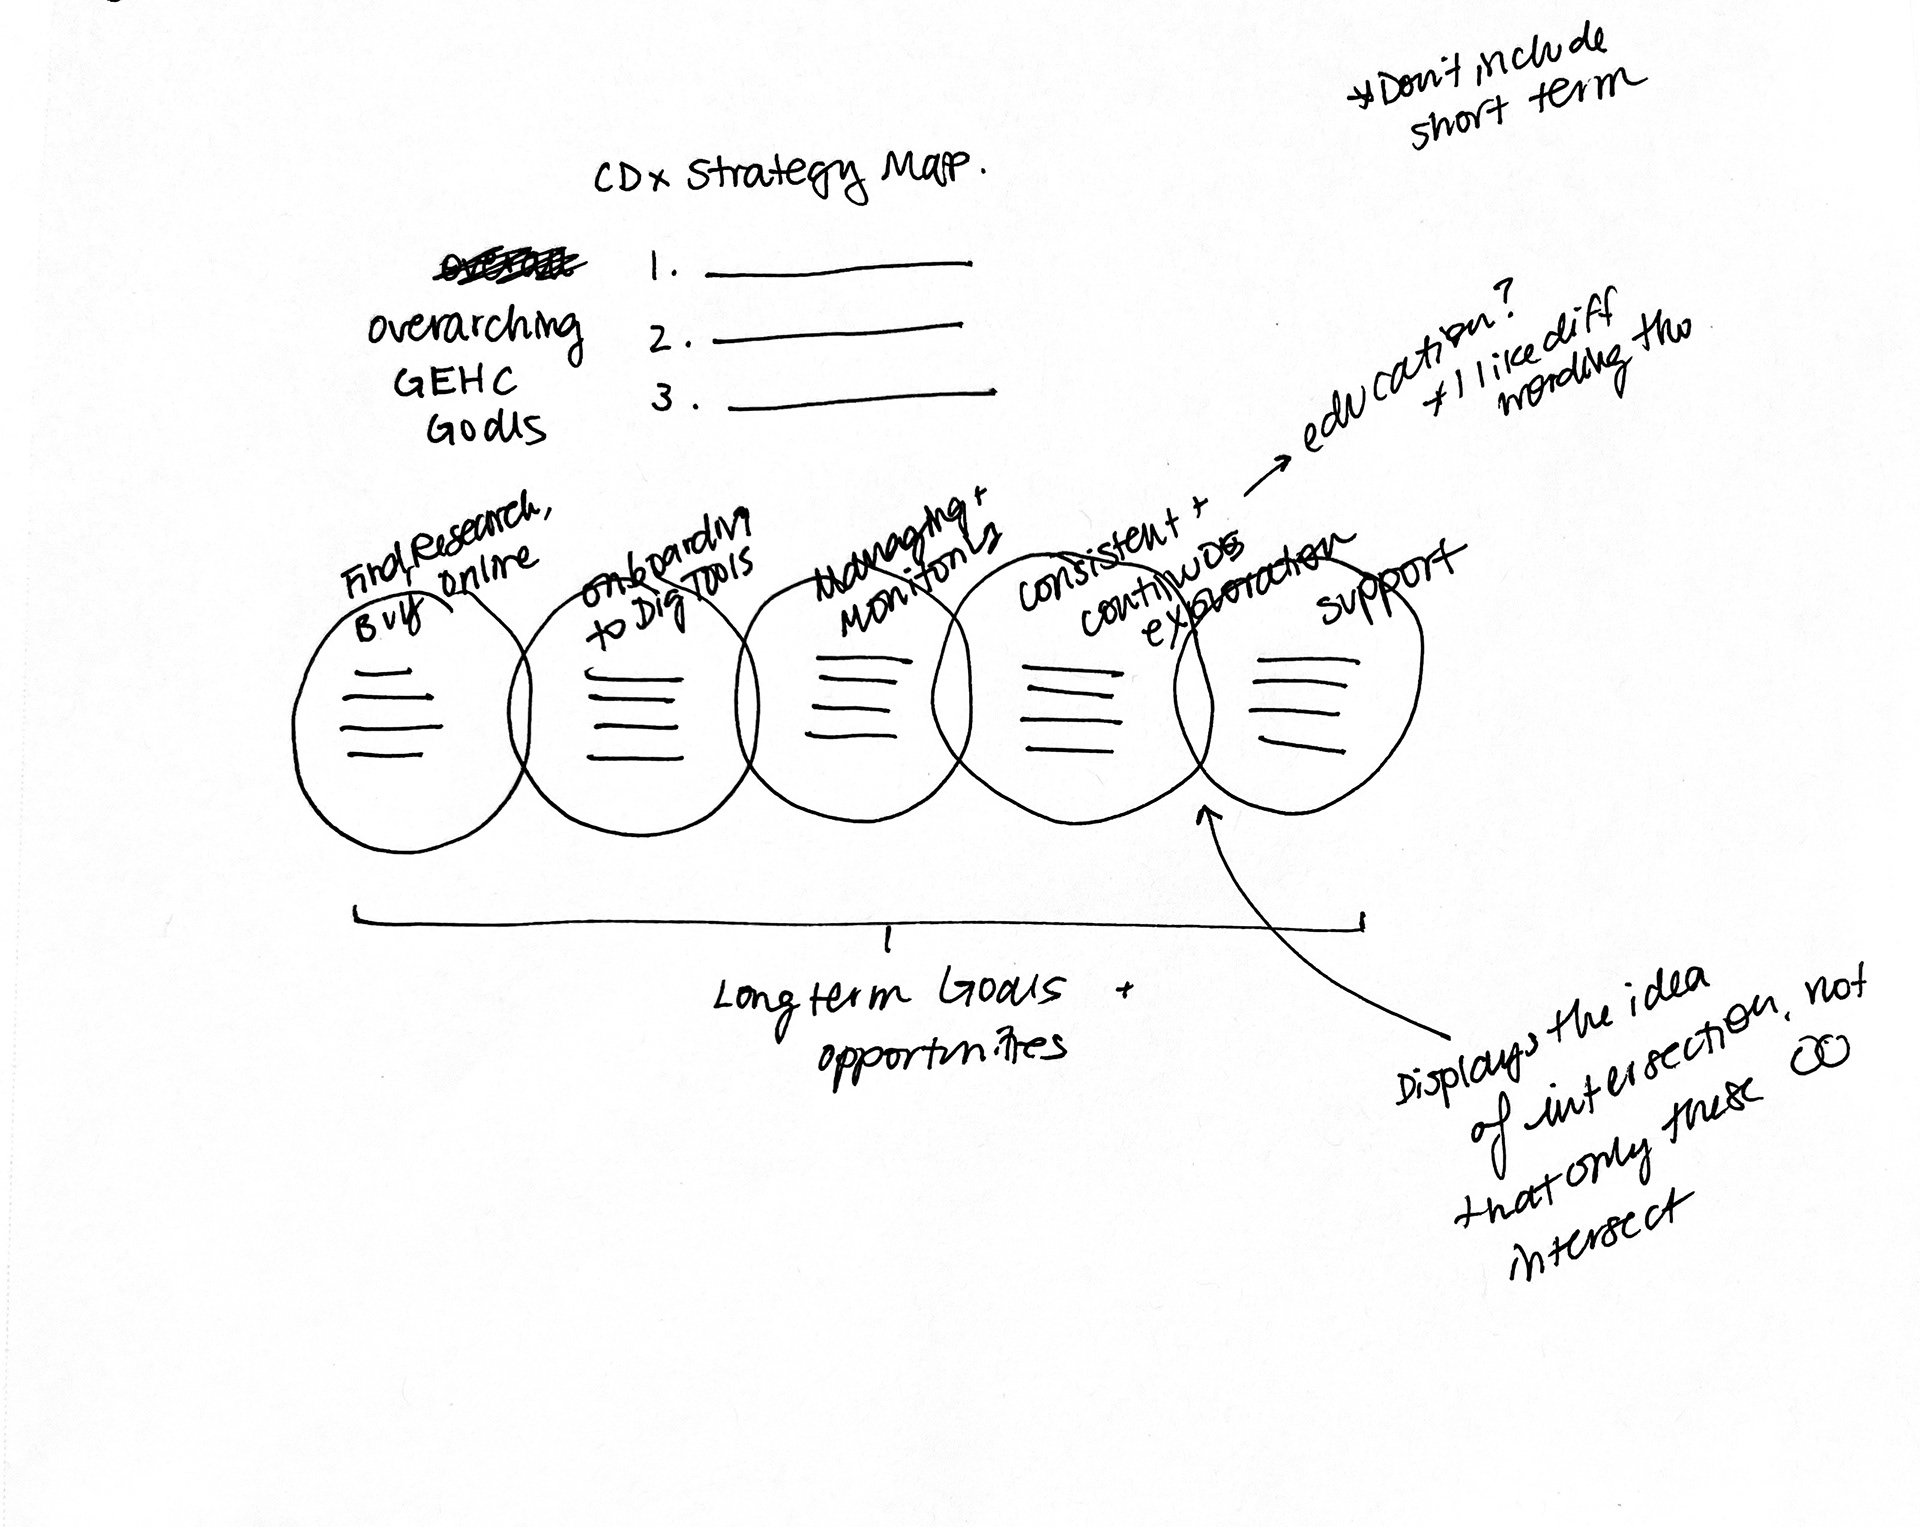 *Don't include
short term
CDx Strategy Map.
overarching
GEHC
Goals
1.
2.
3.
education?
*I like diff
wording tho
Find, Research,
Buy online
onboarding
to Dig Tools
Managing +
Monitoring
consistent +
continuos
exploration
support
Long term Goals +
opportunities
Displays the idea
of intersection, not
that only these
intersect